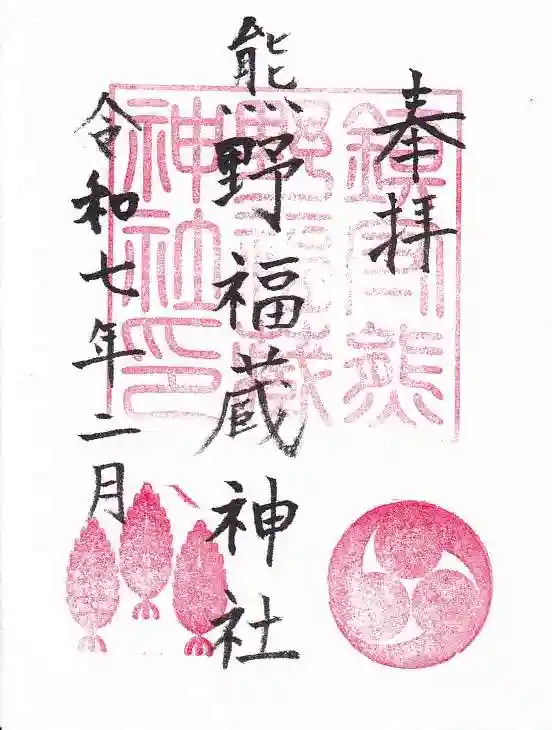 奉拝
熊野福蔵神社
令和七年二月
鎮守熊
野福蔵
神社印